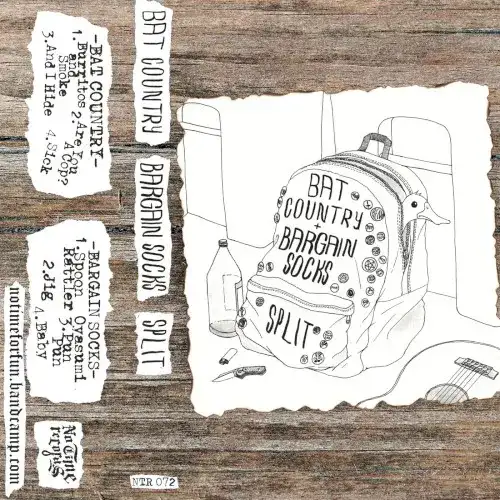 -BAT COUNTRY-
1.Burritos 2.Are You
and A Cop?
Smoke
3.And I Hide 4.Sick
-BARGAIN SOCKS-
1.Spoon Oyasumi
Rattler 3.Pun
2.Jig Pun
4.Baby
notimeforfun.bandcamp.com
No Time
records
BAT COUNTRY
BARGAIN SOCKS
SPLIT
NTR 072
BAT
COUNTRY
+
BARGAIN
SOCKS
SPLIT